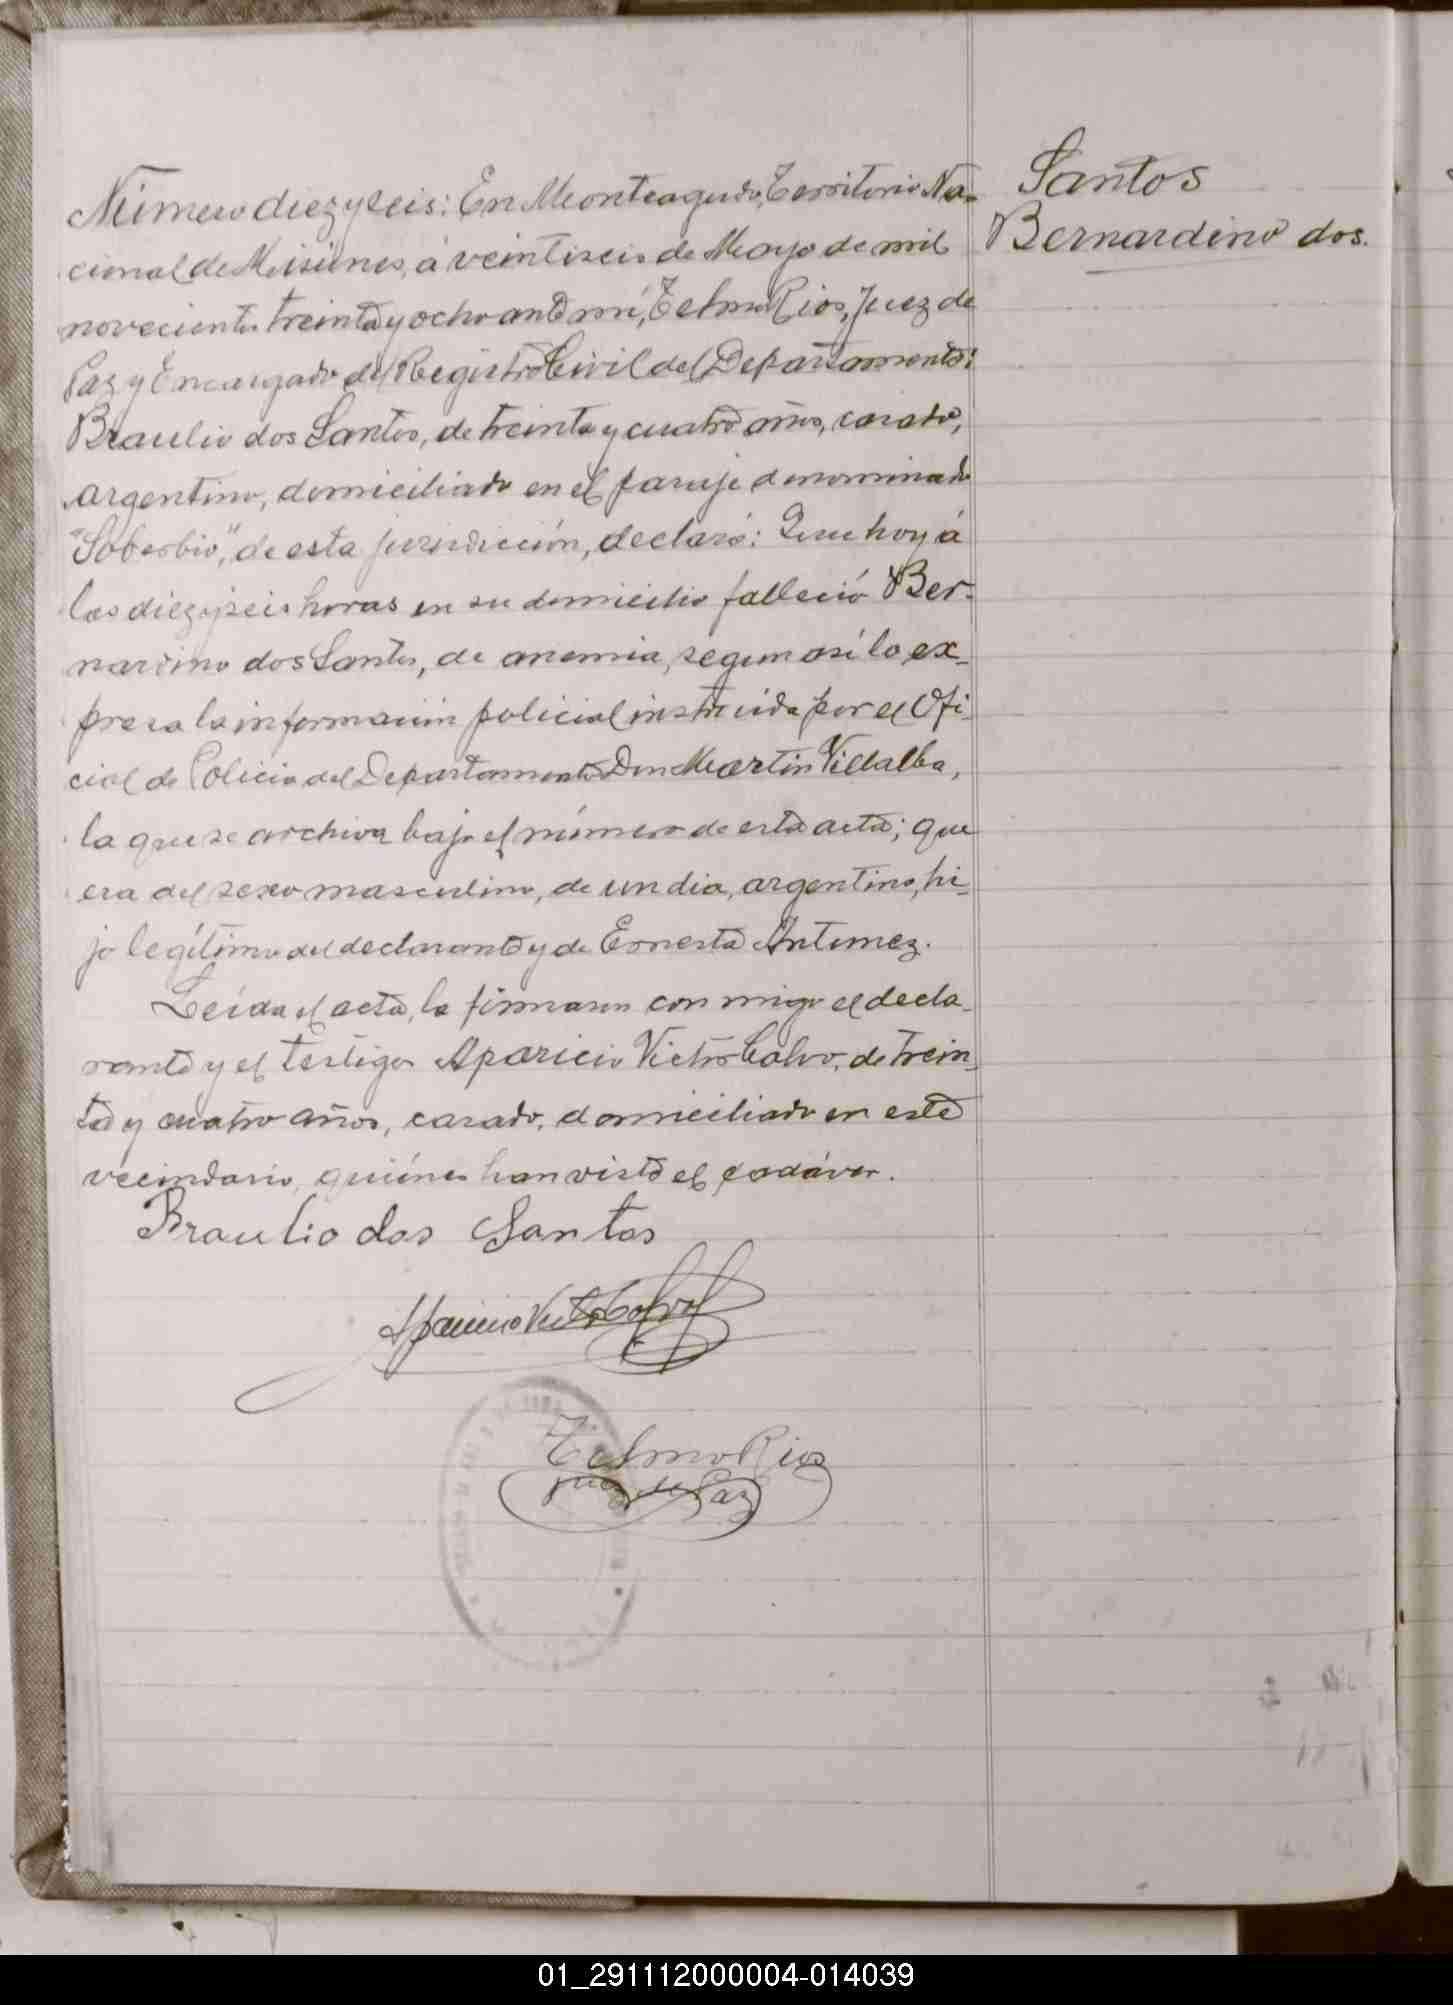 Santos
Bernardino dos.
Número diez y seis: En Monteagudo, Territorio Na-
cional de Misiones, á veintiseis de Mayo de mil
novecientos treinta y ocho ante mí, Telmo Rios, Juez de
Paz y Encargado del Registro Civil del Departamento:
Braulio dos Santos, de treinta y cuatro años, casado,
argentino, domiciliado en el paraje denominado
"Soberbio", de esta jurisdicción, declaró: Que hoy á
las diez y seis horas en su domicilio falleció Ber-
nardino dos Santos, de anemia, segun así lo ex-
presa la información policial instruida por el Ofi-
cial de Policia del Departamento Don Martin Villalba,
la que se archiva bajo el número de esta acta; que
era del sexo masculino, de un dia, argentino, hi-
jo legítimo del declarante y de Ernesta Antunez.
Leída el acta, la firmaron con migo el decla-
rante y el testigo Aparicio Victor Calvo, de trein-
ta y cuatro años, casado, domiciliado en este
vecindario, quiénes han visto el cadáver.
Braulio dos Santos
Aparicio Victor Calvo
Telmo Rios
Juez de Paz
01_291112000004-014039